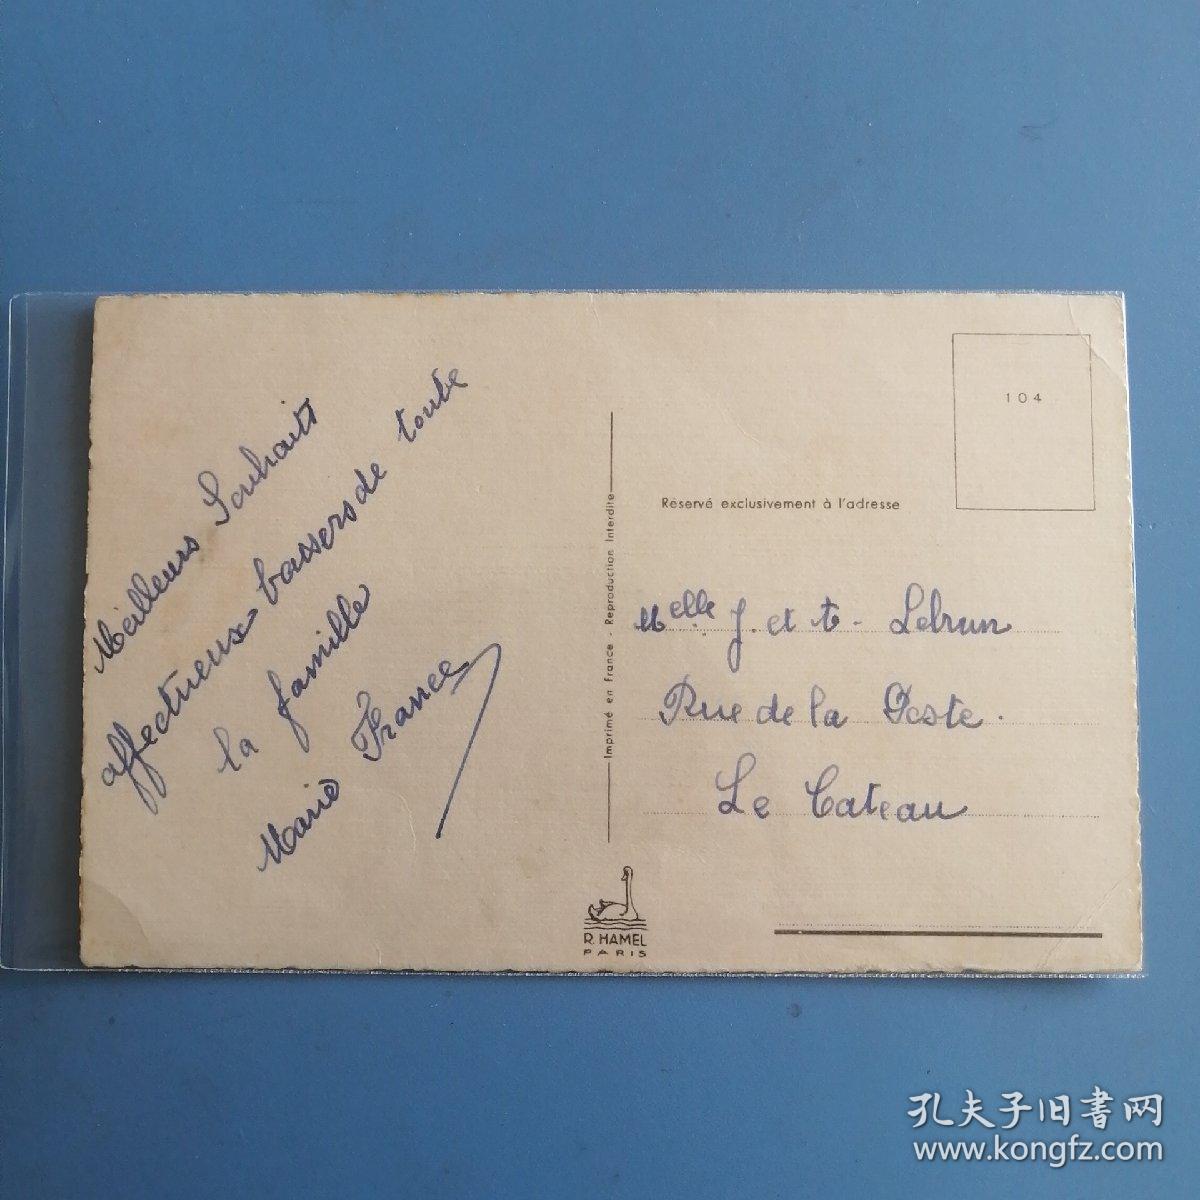 Meilleurs Souhaits
affectueux baisers de toute
la famille
Marie France
Imprimé en France - Reproduction Interdite
R. HAMEL
PARIS
104
Réservé exclusivement à l'adresse
Melle J. et t. Lebrun
Rue de la Poste.
Le Cateau
孔夫子旧书网
www.kongfz.com